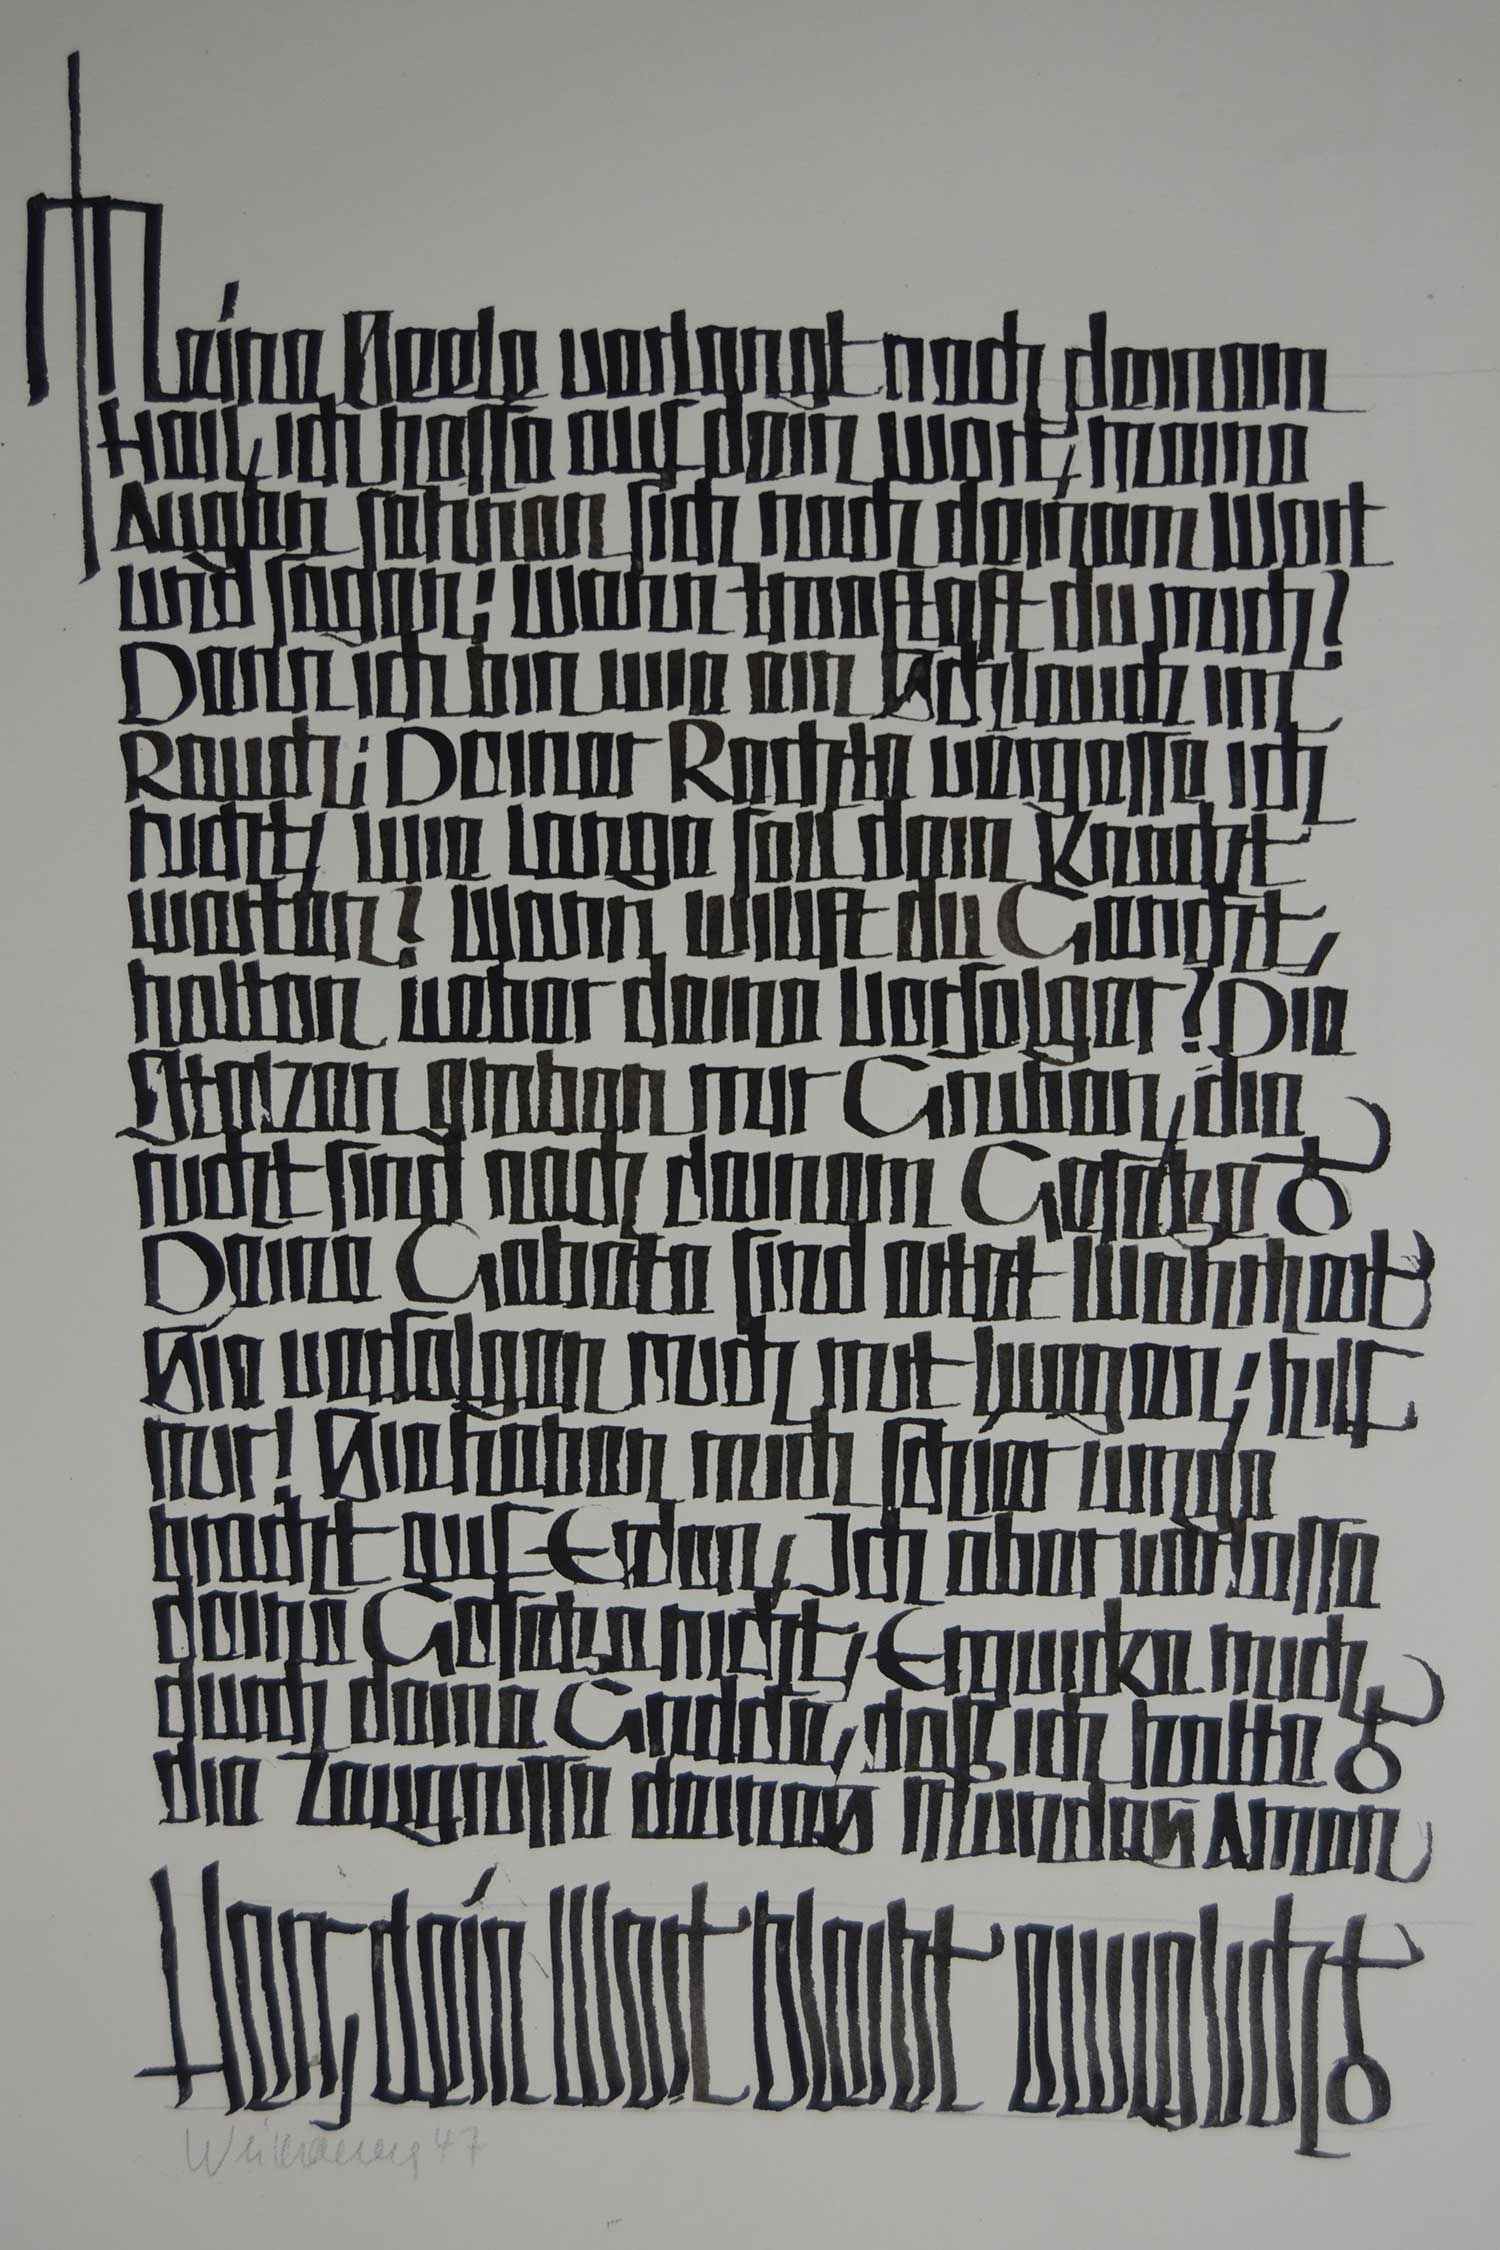 Meine Seele verlangt nach deinem
Heil, ich hoffe auf dein Wort, meine
Augen sehnen sich nach deinem Wort
und sagen; Wann troestest du mich?
Denn ich bin wie ein Schlauch im
Rauch; Deiner Rechte vergesse ich
nicht, wie lange soll dein Knecht
warten? Wann willst du Gericht,
halten ueber deine Verfolger? Die
Stolzen graben mir Gruben, die
nicht sind nach deinem Gesetze
Deine Gebote sind eitel Wahrheit
Sie verfolgen mich mit Lügen; hilf
mir! Sie haben mich schier umge
bracht auf Erden, Ich aber verlasse
deine Gesetze nicht, Erquicke mich
durch deine Gnade, daß ich halte
die Zeugnisse deines Mundes Amen
Herr, dein Wort bleibt ewiglich
47